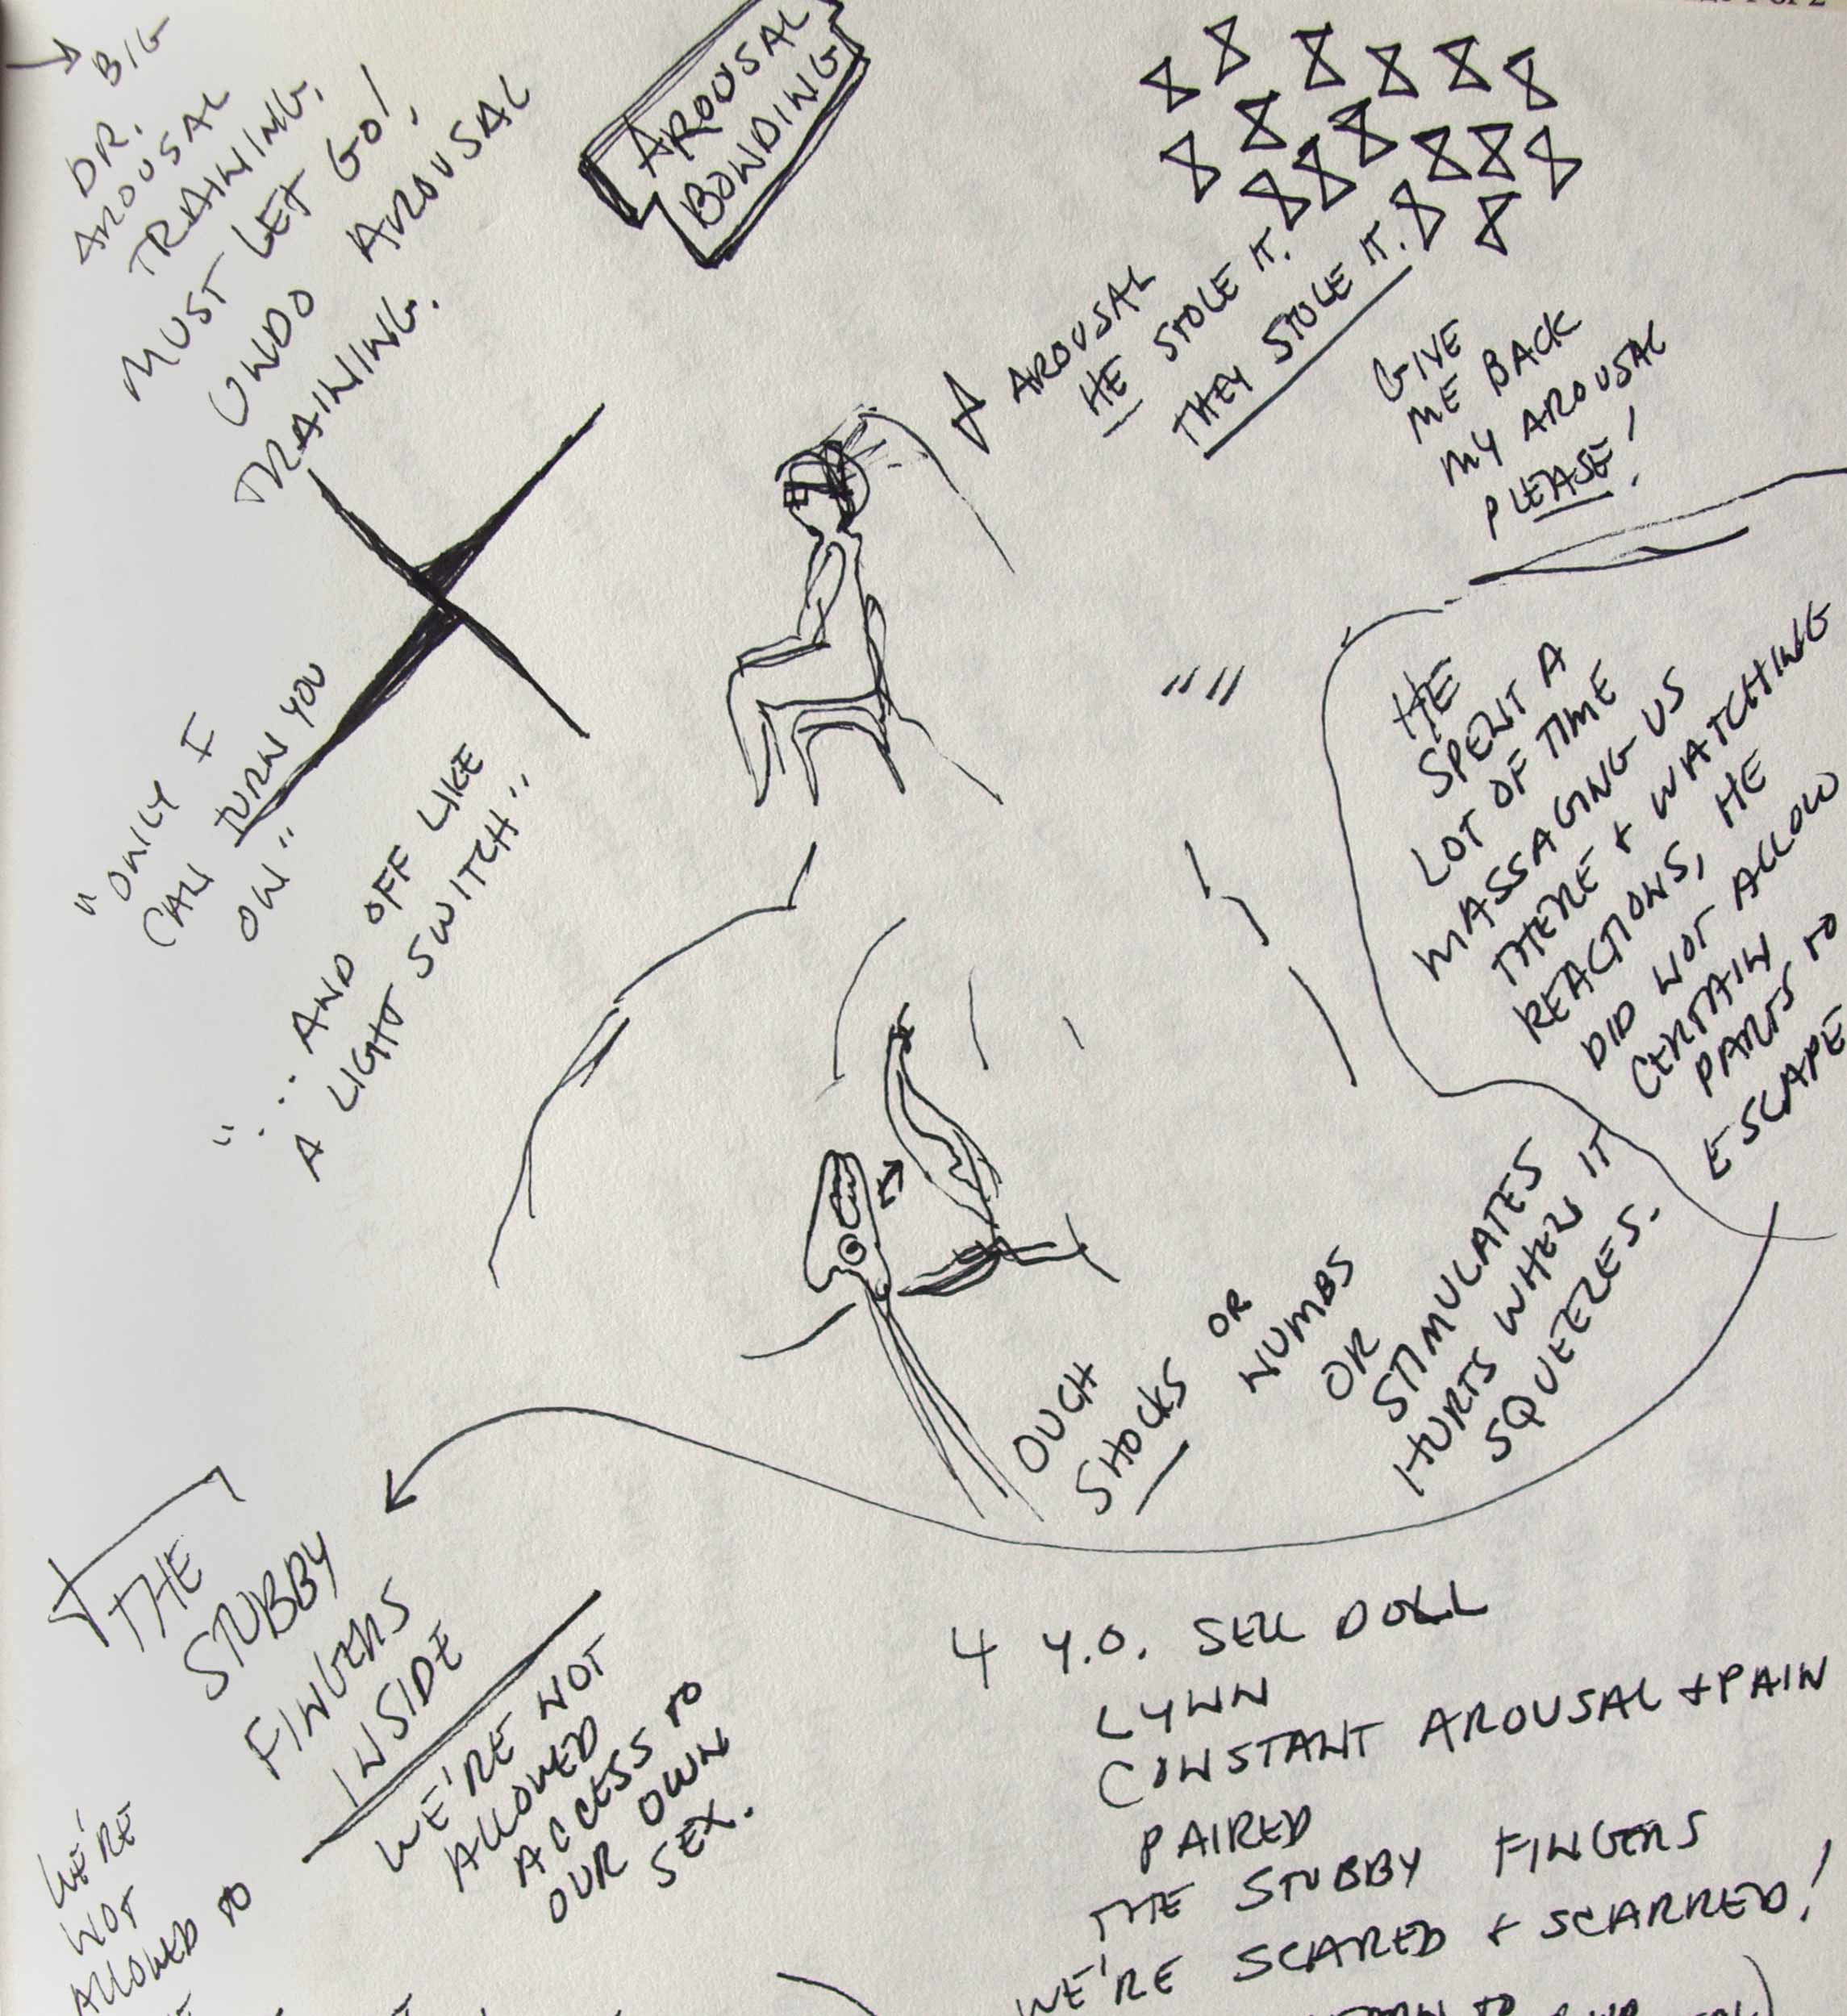 BIG
DR.
AROUSAL
TRAINING.
MUST LET GO!
UNDO AROUSAL
TRAINING.
AROUSAL
BONDING
AROUSAL
HE STOLE IT.
THEY STOLE IT.
GIVE
ME BACK
MY AROUSAL
PLEASE!
"ONLY I
CAN TURN YOU
ON"
"... AND OFF LIKE
A LIGHT SWITCH"
HE
SPENT A
LOT OF TIME
MASSAGING US
THERE + WATCHING
REACTIONS, HE
DID NOT ALLOW
CERTAIN
PARTS TO
ESCAPE
OUCH
SHOCKS OR
NUMBS
OR
STIMULATES
HURTS WHEN IT
SQUEEZES.
THE
STUBBY
FINGERS
INSIDE
WE'RE NOT
ALLOWED
ACCESS TO
OUR OWN
SEX.
WE'RE
NOT
ALLOWED TO
4 Y.O. SEX DOLL
LYNN
CONSTANT AROUSAL + PAIN
PAIRED
THE STUBBY FINGERS
WE'RE SCARED + SCARRED!